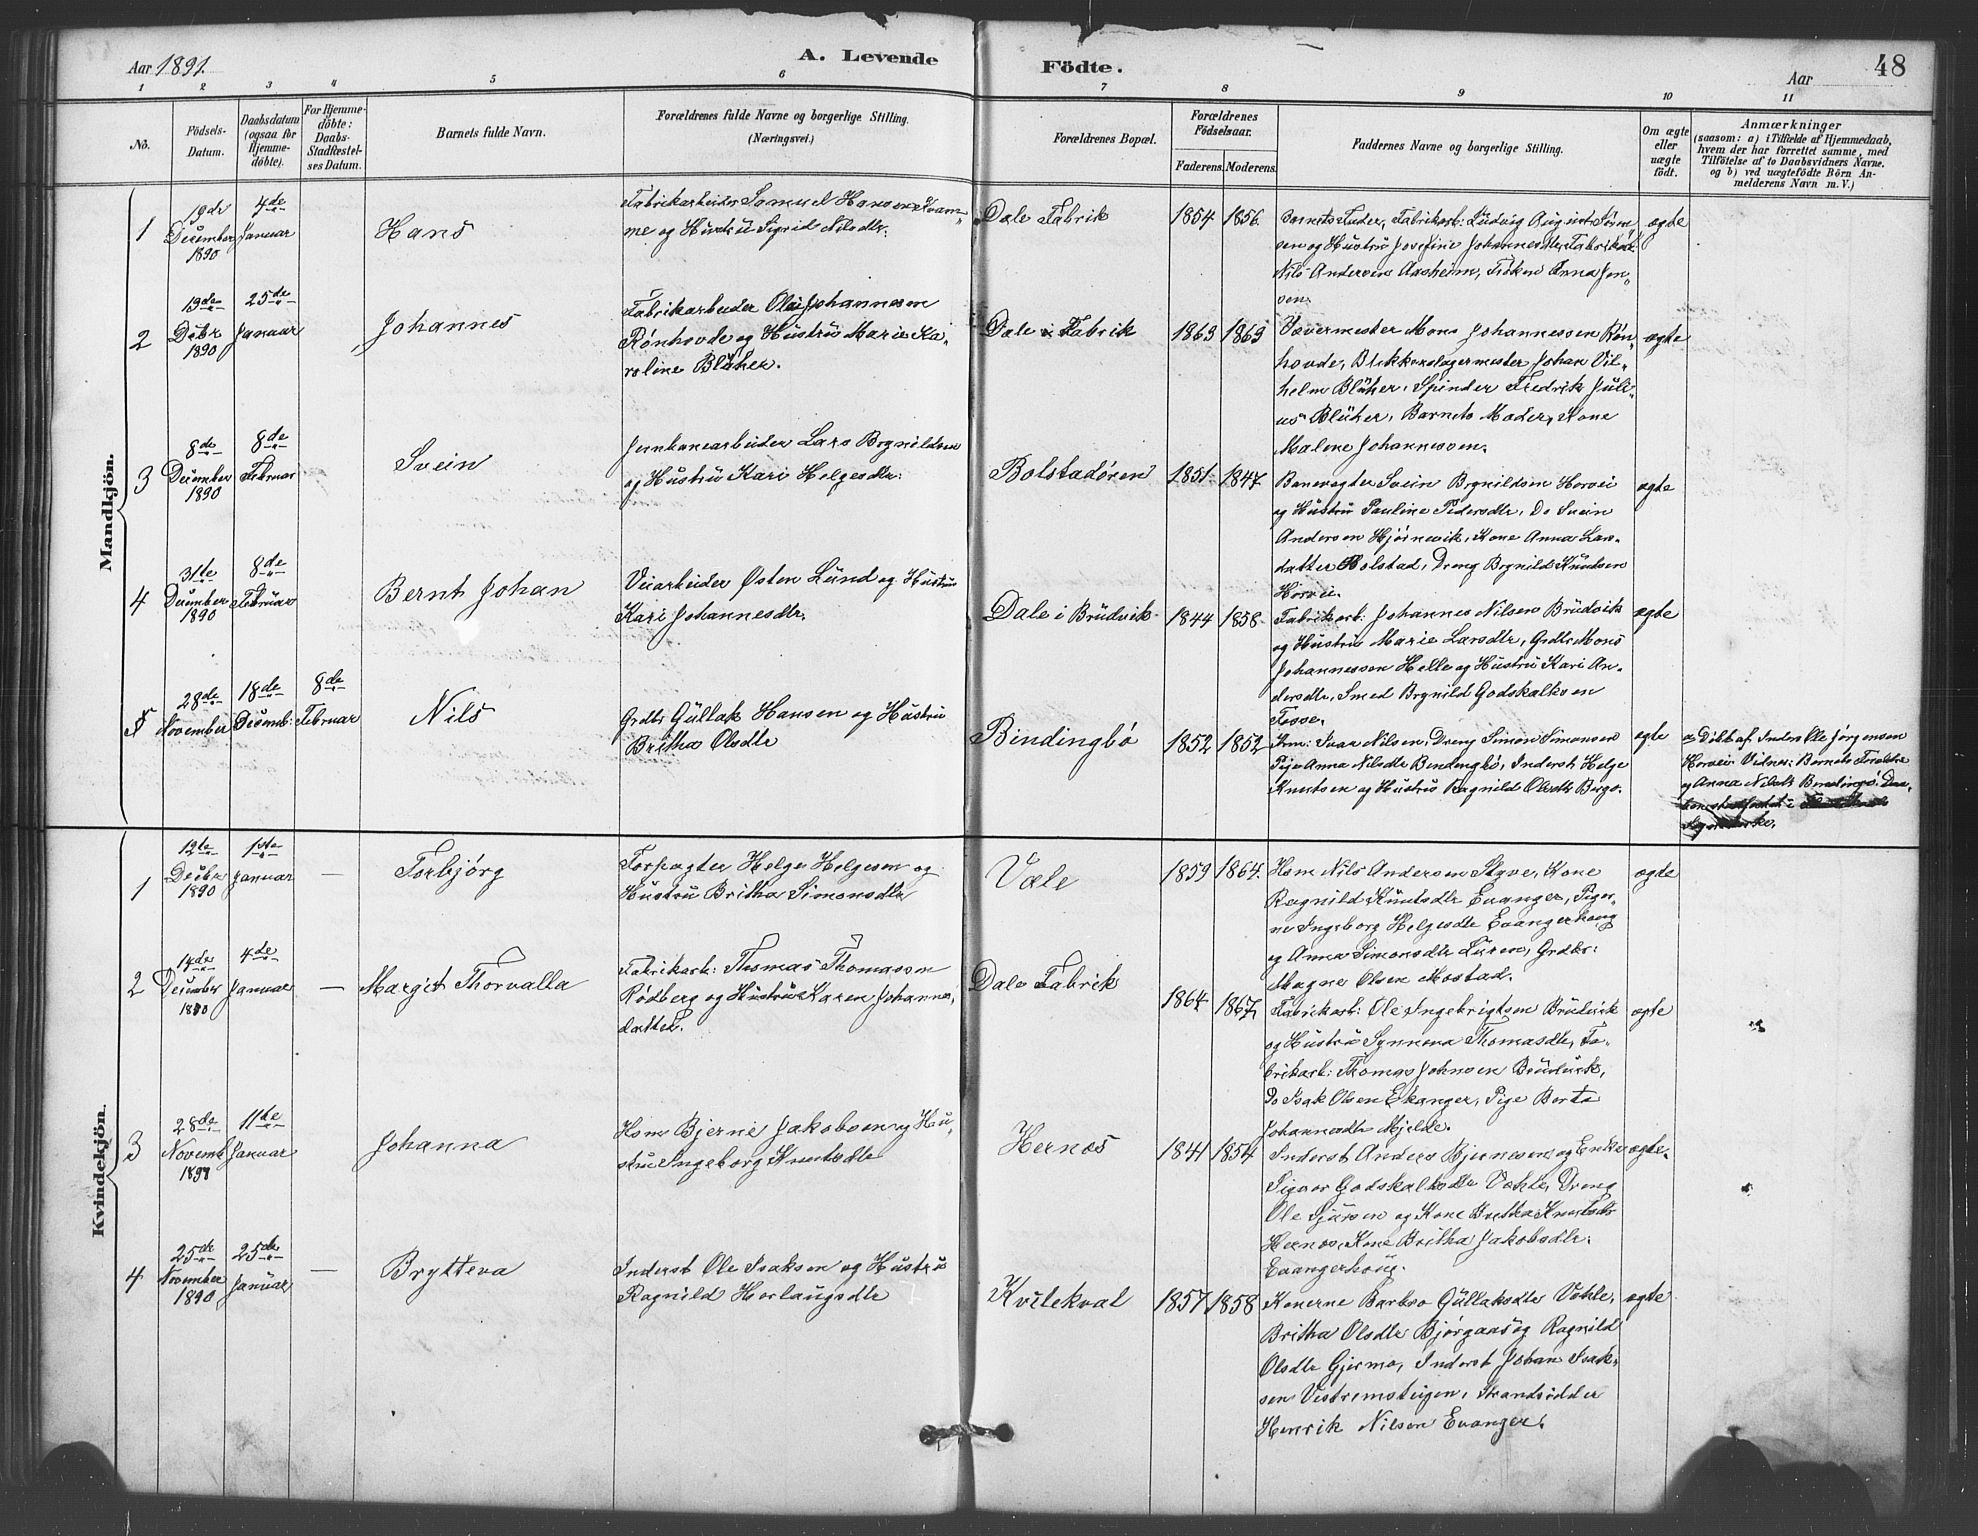 Aar 1891.
A. Levende
Födte.
Aar
48
1 2 3 4 5 6 7 8 9 10 11
No.
Födsels-
Datum.
Daabsdatum
(ogsaa för
Hjemme-
döbte).
For Hjemme-
döbte:
Daabs-
Stadfæstel-
ses Datum.
Barnets fulde Navn.
Forældrenes fulde Navne og borgerlige Stilling.
(Næringsvei.)
Forældrenes Bopæl.
Forældrenes
Födselsaar.
Faderens. Moderens.
Faddernes Navne og borgerlige Stilling.
Om ægte
eller
uægte
födt.
Anmærkninger
(saasom: a) i Tilfælde af Hjemmedaab,
hvem der har forrettet samme, med
Tilföielse af to Daabsvidners Navne.
og b) ved uægtefödte Börn An-
melderens Navn m. V.)
Mandkjön.
1
19de
December
1890
4de
Januar
Hans
Fabrikarbeider Samuel Hansen Kvam-
me og Hustru Sigrid Nilsdtr.
Dale Fabrik
1854 1856
Barnets Fader, Fabrikarb: Ludvig August Søren-
sen og Hustru Josefine Johannesdtr, Fabrikarb
Nils Andersen Aasheim, Frøken Anna Jen-
sen.
ægte
2
13de
Debr
1890
25de
Januar
Johannes
Fabrikarbeider Ole Johannesen
Rønhovde og Hustru Marie Ka-
roline Blüher.
Dale Fabrik
1863 1863
Vævermester Mons Johannessen Røn-
hovde, Blikkenslagermester Johan Vil-
helm Blüher, Spinder Fredrik Juli-
us Blüher, Barnets Moder, Kone
Malene Johannessen.
ægte
3
8de
December
1890
8de
Februar
Svein
Jernbanearbeider Lars Brynildsen
og Hustru Kari Helgesdtr.
Bolstadøren
1851 1847
Banevogter Svein Brynildsen Horvei
og Hustru Pauline Pedersdtr, Do Svein
Andersen Hjørnevik, Kone Anna Lars-
datter Bolstad, Dreng Brynild Knutsen
Horvei.
ægte
4
31te
December
1890
8de
Februar
Bernt Johan
Veiarbeider Østen Lund og Hustru
Kari Johannesdtr.
Dale i Brudvik
1844 1858
Fabrikarb: Johannes Nilsen Brudvik
og Hustru Marie Larsdtr, Grdbr Mons
Johannessen Helle og Hustru Kari An-
dersdtr, Smed Brynild Godskalksen
Fosse.
ægte
5
28de
November
18de
Decemb:
8de
Februar
Nils
Grdbr Gullak Hansen og Hustru
Britha Olsdtr
Bindingbø
1852 1852
Ivar Nilsen, Dreng Simon Simonsen
Pige Anna Nilsdtr Bindingbø, Inderst Helge
Knutsen og Hustru Ragnild Olsdtr Bergo.
ægte
a) Døbt af Inderst Ole Jørgensen
Horvei. Vidner: Barnets Forældre
og Anna Nilsdtr Bindingbø.
Kvindekjön.
1
12te
Decbr
1890
1ste
Januar
—
Torbjørg
Forpagter Helge Helgesen og
Hustru Britha Simonsdtr
Væle
1859 1864.
Hsm Nils Andersen Styve, Kone
Ragnild Knutsdtr Evanger, Piger-
ne Ingeborg Helgesdtr Evangerhaug
og Anna Simonsdtr Furen, Grdbr:
Magne Olsen Mostad.
ægte
2
14de
December
1890
4de
Januar
—
Margit Thorvalla
Fabrikarb: Thomas Thomassen
Rødberg og Hustru Karen Johannes-
datter.
Dale Fabrik
1864 1867
Fabrikarb: Ole Ingebrigtsen Brudvik
og Hustru Synneva Thomasdtr, Fa-
brikarb: Thomas Johnsen Brudvik,
Do Isak Olsen Ekanger, Pige Berta
Johannesdtr Mjelde.
ægte
3
28de
Novemb
11te
Januar
Johanna
Hsm Bjerne Jakobsen og Hu-
stru Ingeborg Knutsdtr
Hernes
1841 1854
Inderst Anders Bjernesen og Enke
Siguor Godskalksdtr Vohle, Dreng
Ole Sjursen og Kone Britha Knutsdtr
Hernes, Kone Britha Jakobsdtr.
Evangerhoug.
ægte.
4
25de
November
1890
25de
Januar
—
Brytteva
Inderst Ole Isaksen og Hustru
Ragnild Herlaugsdtr
Kvilekval
1857 1858
Konerne Barbro Gullaksdtr Vohle,
Britha Olsdtr Bjørgaas og Ragnild
Olsdtr Gjermo, Inderst Johan Isak-
sen Vestremsteigen, Strandsidder
Henrik Nilsen Evanger.
ægte